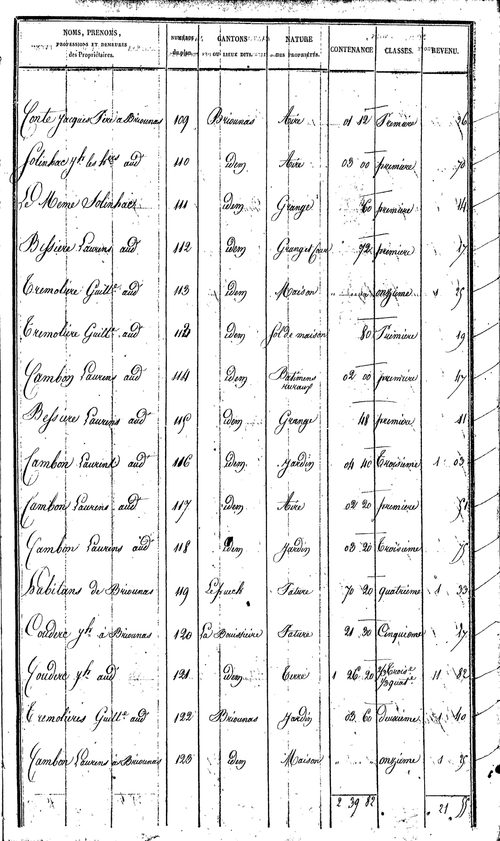 NOMS, PRÉNOMS, PROFESSIONS ET DEMEURE des Propriétaires. NUMÉROS du plan CANTONS OU LIEUX DITS NATURE DES PROPRIÉTÉS. CONTENANCE CLASSES. REVENU.
Conte Jacques Père a Briounas 109 Briounas Aire 01 12 Première 26
Solinhac jh les hers aud 110 idem Aire 03 00 première 70
Le Meme Solinhac 111 idem Grange 60 première 14
Bessiere Laurens aud 112 idem Grange et four 72 première 17
Tremoliere Guille aud 113 idem Maison onzieme 1 25
Tremoliere Guille aud 112 idem Sol de maison 80 Première 19
Cambon Laurens aud 114 idem Batimens ruraux 02 00 première 47
Bessiere Laurens aud 115 idem Grange 48 première 11
Cambon Laurens aud 116 idem Jardin 04 40 Troisieme 1 03
Cambon Laurens aud 117 idem Aire 02 20 première 51
Cambon Laurens aud 118 idem Jardin 03 20 Troisieme 75
habitans de Briounas 119 Le puech Pature 70 20 quatrième 1 33
Couderc jh à Briounas 120 La Bouissiere Pature 21 30 Cinquieme 17
Couderc jh aud 121 idem Terre 1 26 20 11 82
Tremolieres Guille aud 122 Briounas Jardin 03 60 deuxieme 1 40
Cambon Laurens a Briounas 123 idem Maison onzieme 1 25
2 39 82 21 55